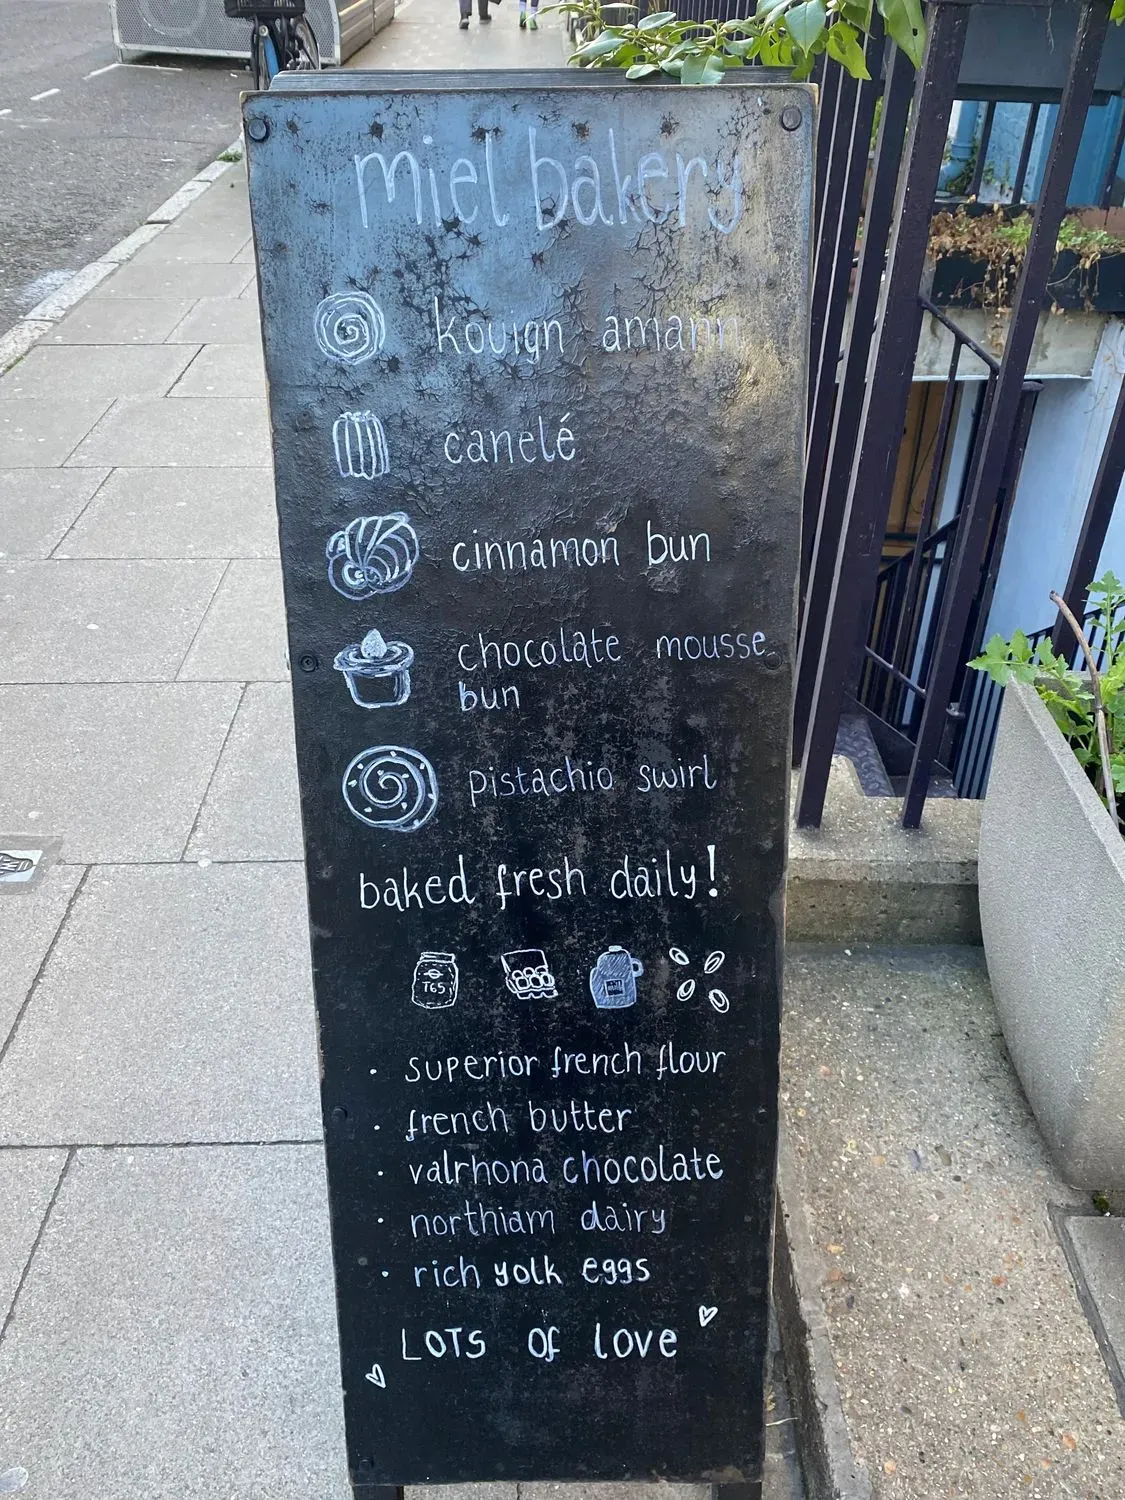 miel bakery
kouign amann
canelé
cinnamon bun
chocolate mousse
bun
pistachio swirl
baked fresh daily!
T65
superior french flour
french butter
valrhona chocolate
northiam dairy
rich yolk eggs
LOTS of love